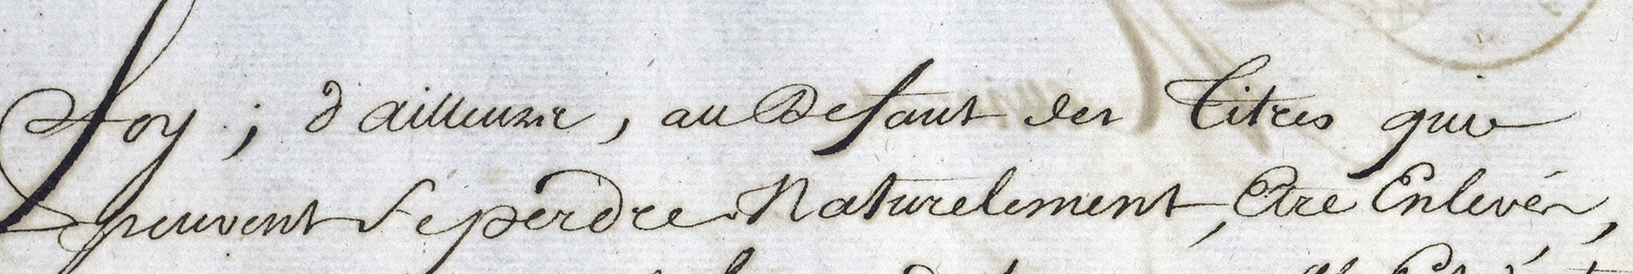 foy ; d'ailleurs, au Defaut des Titres qui
peuvent Se perdre Naturelement, Etre Enlevés,